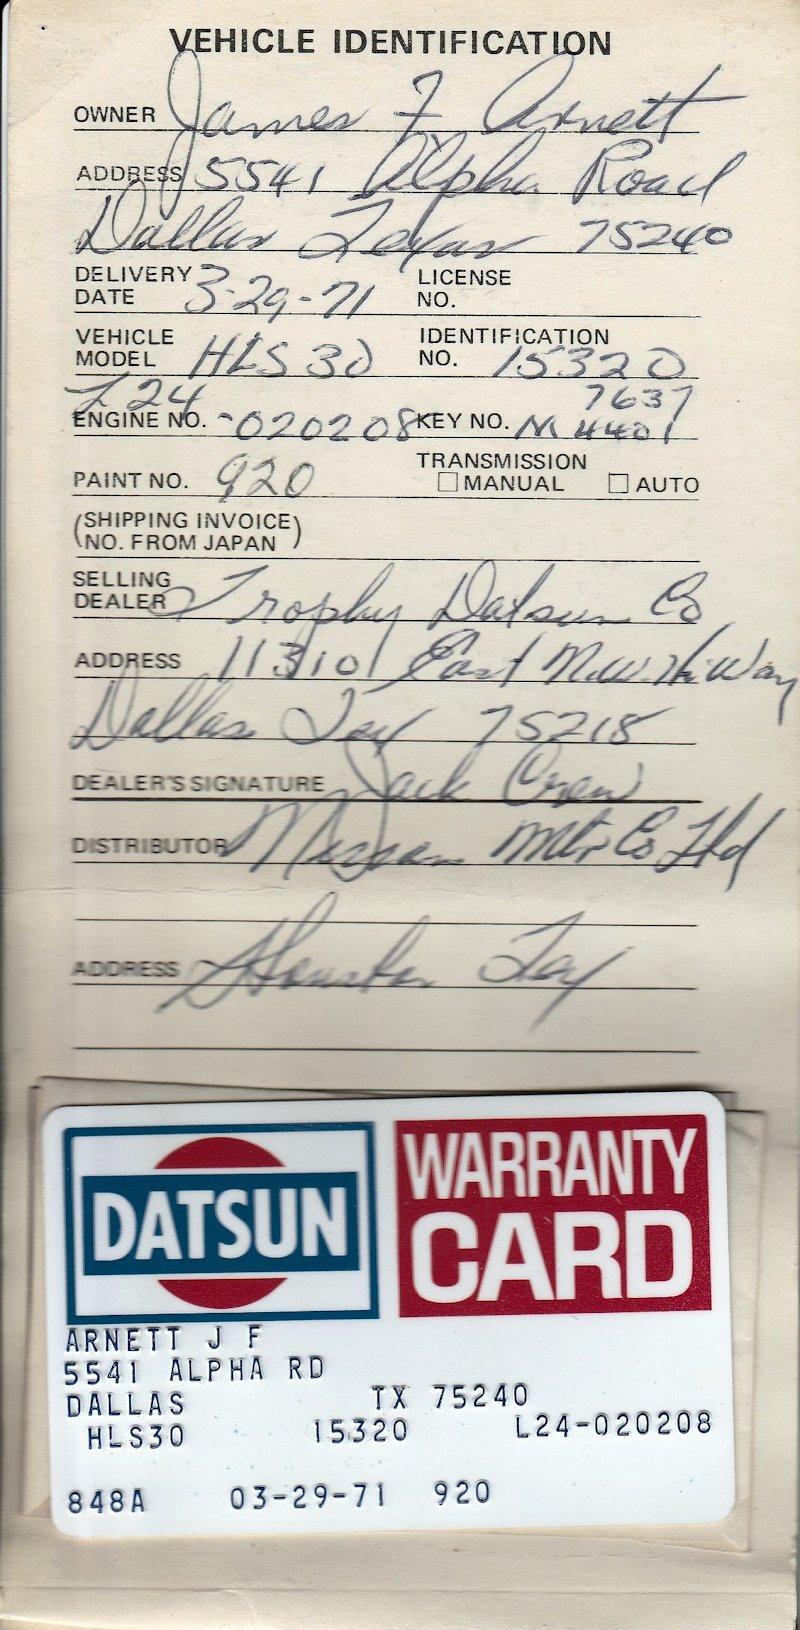 VEHICLE IDENTIFICATION
OWNER James F Arnett
ADDRESS 5541 Alpha Road
Dallas Texas 75240
DELIVERY DATE 3-29-71 LICENSE NO.
VEHICLE MODEL HLS30 IDENTIFICATION NO. 15320
L24 7637
ENGINE NO. -020208 KEY NO. M 4401
PAINT NO. 920 TRANSMISSION MANUAL AUTO
(SHIPPING INVOICE NO. FROM JAPAN)
SELLING DEALER Trophy Datsun Co
ADDRESS 11310 East N.W. HiWay
Dallas Tex 75218
DEALER'S SIGNATURE Jack Crew
DISTRIBUTOR Nissan Mtr Co Ltd
ADDRESS Houston Tex
DATSUN
WARRANTY
CARD
ARNETT J F
5541 ALPHA RD
DALLAS TX 75240
HLS30 15320 L24-020208
848A 03-29-71 920